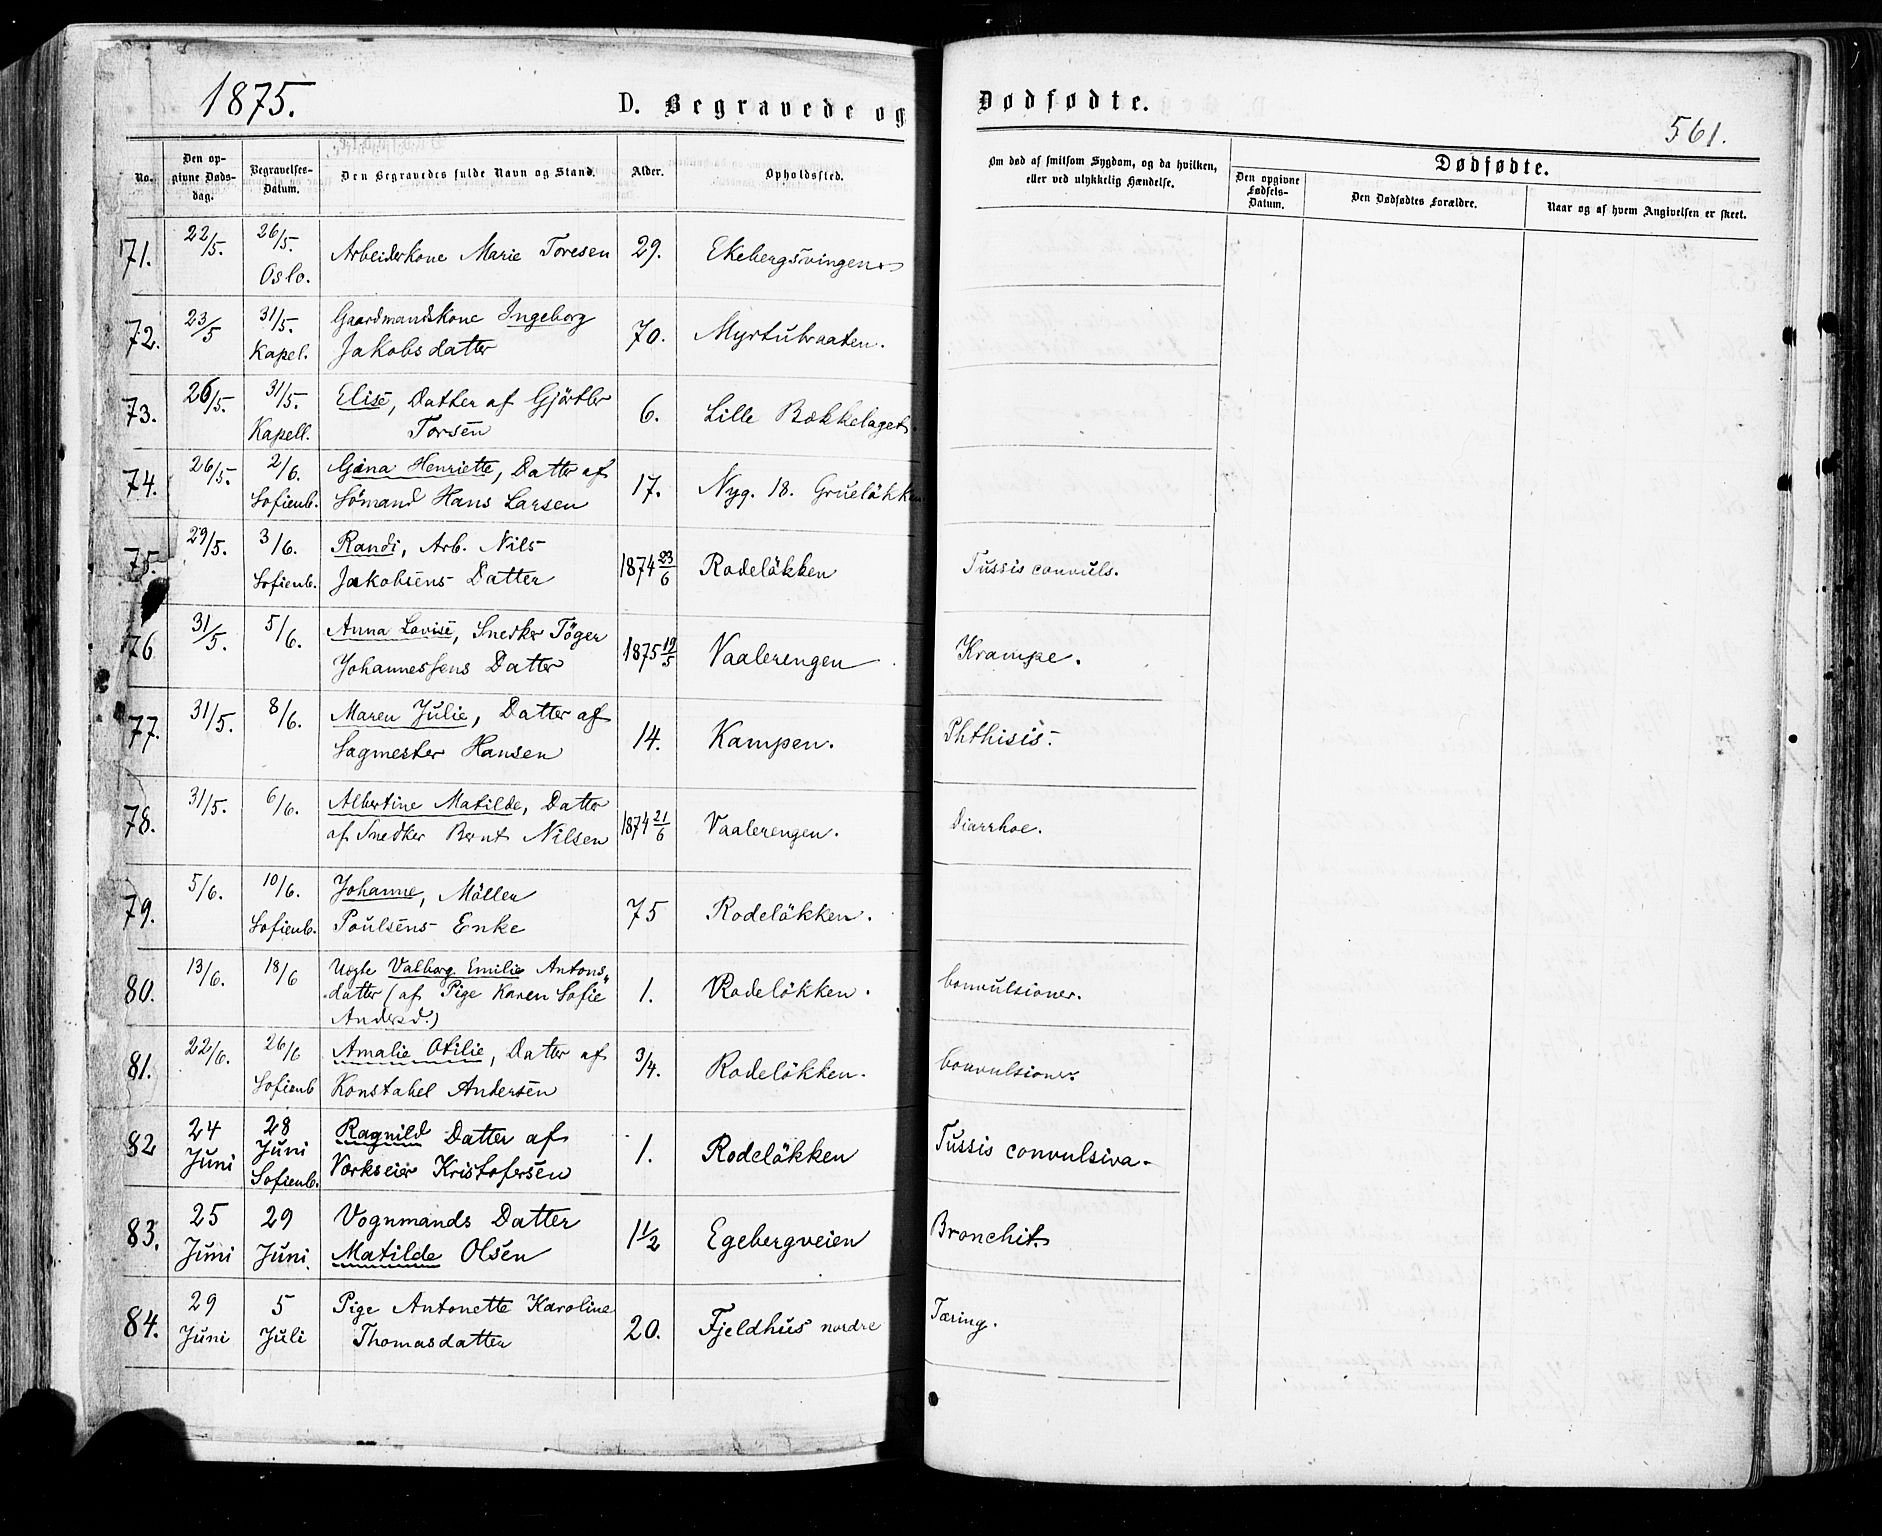 1875.
D. Begravede og
Dødfødte.
561.
No.
Den op-
givne Døds-
dag.
Begravelses-
Datum.
Den Begravedes fulde Navn og Stand.
Alder.
Opholdssted.
Om død af smitsom Sygdom, og da hvilken,
eller ved ulykkelig Hændelse.
Dødfødte.
Den opgivne
Fødsels-
Datum.
Den Dødfødtes Forældre.
Naar og af hvem Angivelsen er skeet.
71. 22/5. 26/5. Oslo. Arbeiderkone Marie Toresen 29. Ekebergsvingen
72. 23/5 31/5. Kapel. Gaardmandskone Ingeborg
Jakobsdatter 70. Myrtubraaten.
73. 26/5. 31/5. Kapell. Elise, Datter af Gjörtler
Torsen 6. Lille Bækkelaget.
74. 26/5. 2/6. Sofienb. Gina Henriette, Datter af
Sömand Hans Larsen 17. Nyg. 18. Grueløkken
75. 29/5. 3/6. Sofienb. Randi, Arb. Nils
Jakobsens Datter 1874 23/6 Rodeløkken Tussis convuls.
76 31/5. 5/6. Anna Lovise, Snedker Töger
Johannessens Datter 1875 19/5 Vaalerengen Krampe.
77. 31/5. 8/6. Maren Julie, Datter af
Sagmester Hansen 14. Kampen. Phthisis.
78. 31/5. 6/6. Albertine Matilde, Datter
af Snedker Bernt Nilsen 1874 21/6 Vaalerengen. Diarrhoe.
79. 5/6. 10/6. Sofienb. Johanne, Möller
Poulsens Enke 75 Rodeløkken.
80. 13/6. 18/6 Uegte Valborg Emilie Antons-
datter (af Pige Karen Sofie
Andersd.) 1. Rodeløkken. Convulsioner.
81. 22/6. 26/6 Sofienb Amalie Otilie, Datter af
Konstabel Andersen 3/4. Rodeløkken. Convulsioner.
82 24 Juni 28 Juni Sofienb. Ragnild Datter af
Værkseier Kristofersen 1. Rodeløkken Tussis convulsiva.
83. 25 Juni 29 Juni. Vognmands Datter
Matilde Olsen 1 1/2 Egebergveien Bronchit.
84. 29 Juni 5 Juli Pige Antonette Karoline
Thomasdatter 20. Fjeldhus nordre Tæring.